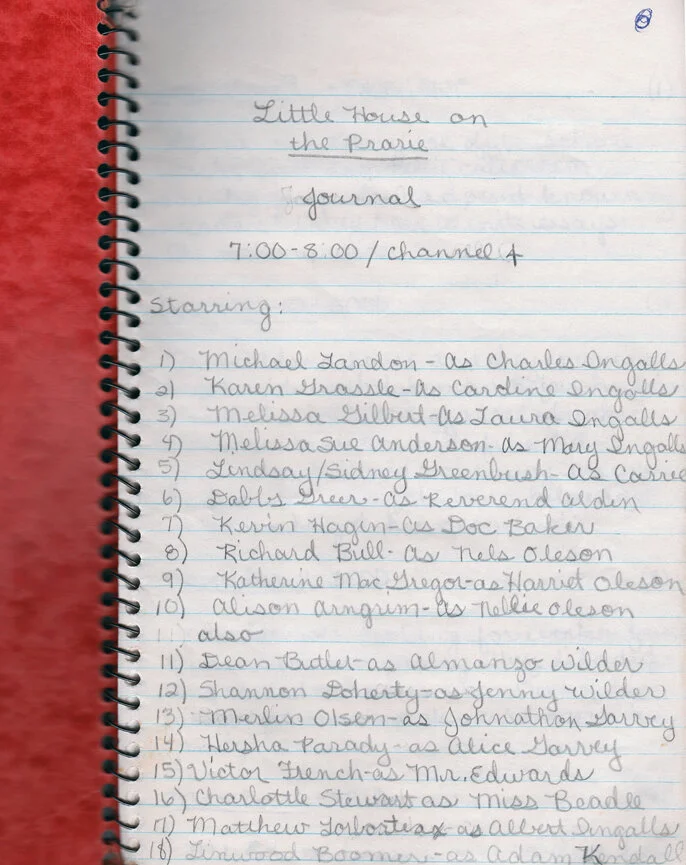 Little House on
the Prarie
Journal
7:00-8:00 / channel 4
Starring:
1) Michael Landon - as Charles Ingalls
2) Karen Grassle - as Caroline Ingalls
3) Melissa Gilbert - as Laura Ingalls
4) Melissa Sue Anderson - as Mary Ingalls
5) Lindsay/Sidney Greenbush - as Carrie
6) Dabbs Greer - as Reverend Aldin
7) Kevin Hagin - as Doc Baker
8) Richard Bull - as Nels Oleson
9) Katherine Mac Gregor - as Harriet Oleson
10) Alison Arngrim - as Nellie Oleson
11) also
11) Dean Butler - as Almanzo Wilder
12) Shannon Doherty - as Jenny Wilder
13) Merlin Olsen - as Johnathan Garvey
14) Hersha Parady - as Alice Garvey
15) Victor French - as Mr. Edwards
16) Charlottle Stewart as Miss Beadle
17) Matthew - as Albert Ingalls
18) Linwood Boomer - as Adam Kendall